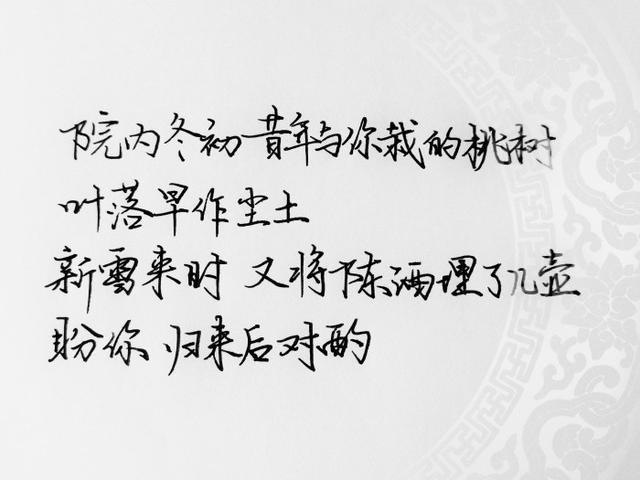 院内冬初 昔年与你栽的桃树
叶落早作尘土
新雪来时 又将陈酒埋了几壶
盼你 归来后对酌